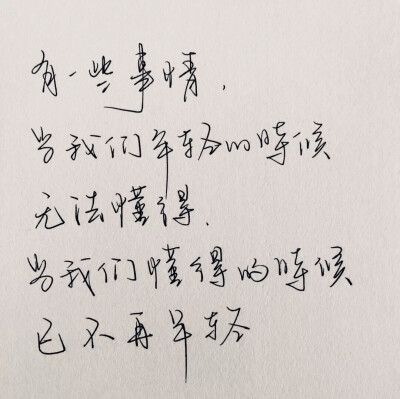 有一些事情，
当我们年轻的時候
无法懂得.
当我们懂得的時候
已不再年轻